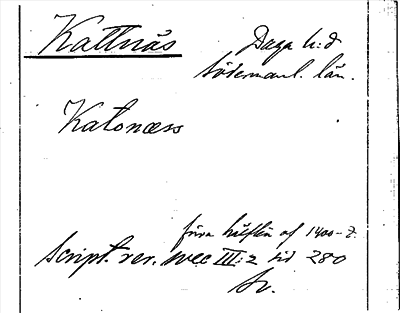 Kattnäs
Daga h:d
Södermanl. län.
Katonæss
förra hälften af 1400-t.
Script. rer. svec III:2 sid 280
Sv.